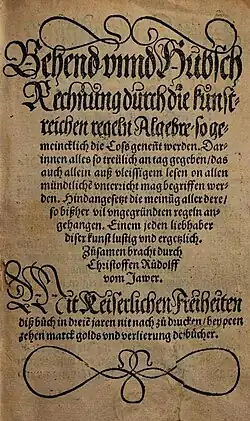 Behend vnnd Hubsch
Rechnung durch die kunst-
reichen regeln Algebre/so ge-
meincklich die Coss genent werden. Dar-
innen alles so treülich an tag gegeben/das
auch allein auß vleissigem lesen on allen
mündtlichē vnterricht mag begriffen wer-
den. Hindangesetzt die meinūg aller dere/
so bißher vil vngegründten regeln an-
gehangen. Einem jeden liebhaber
diser kunst lustig vnd ergetzlich.
Zusamen bracht durch
Christoffen Rudolff
vom Jawer.
Mit Keiserlichen Freiheiten
diß büch in dreiē jaren nit nach zů drucken/bey peen
zehen marck golds vnd verlierung der bücher.